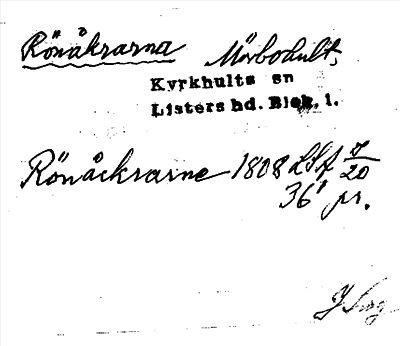 Rönåkrarna Mörbohult,
Kyrkhults sn
Listers hd. Blek. l.
Rönåckrarne 1808 LSA 7/20
36' pr.